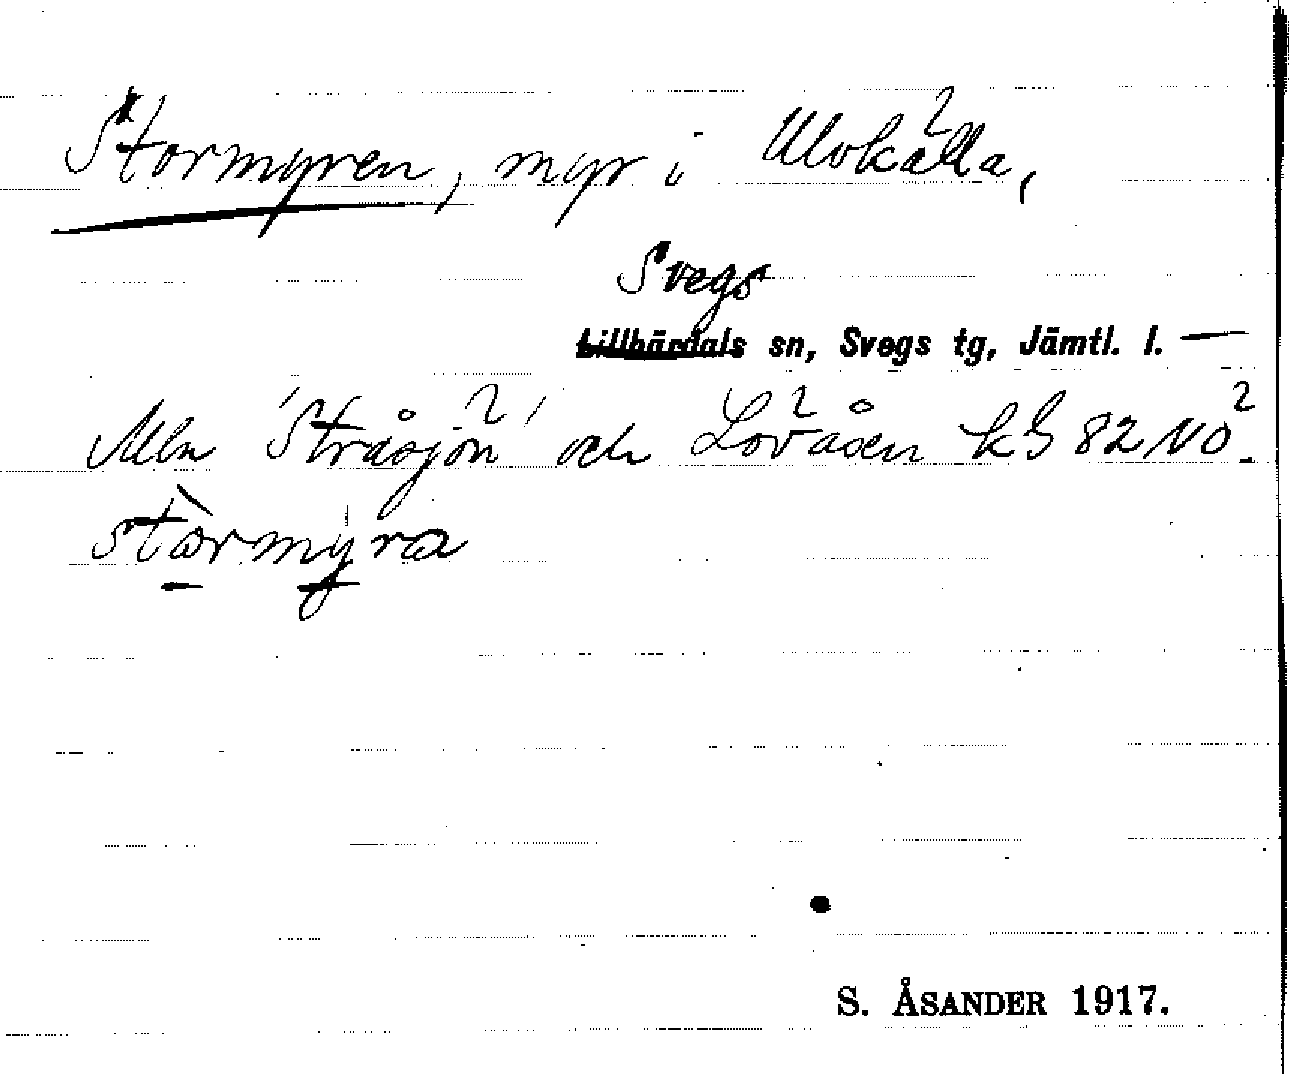 Stormyren, myr i Ulvkälla,
Svegs
Lillhärdals sn, Svegs tg, Jämtl. l. —
Mln 'Stråsjön' och Lövåsen kb 82 NO².
stormyra
S. ÅSANDER 1917.